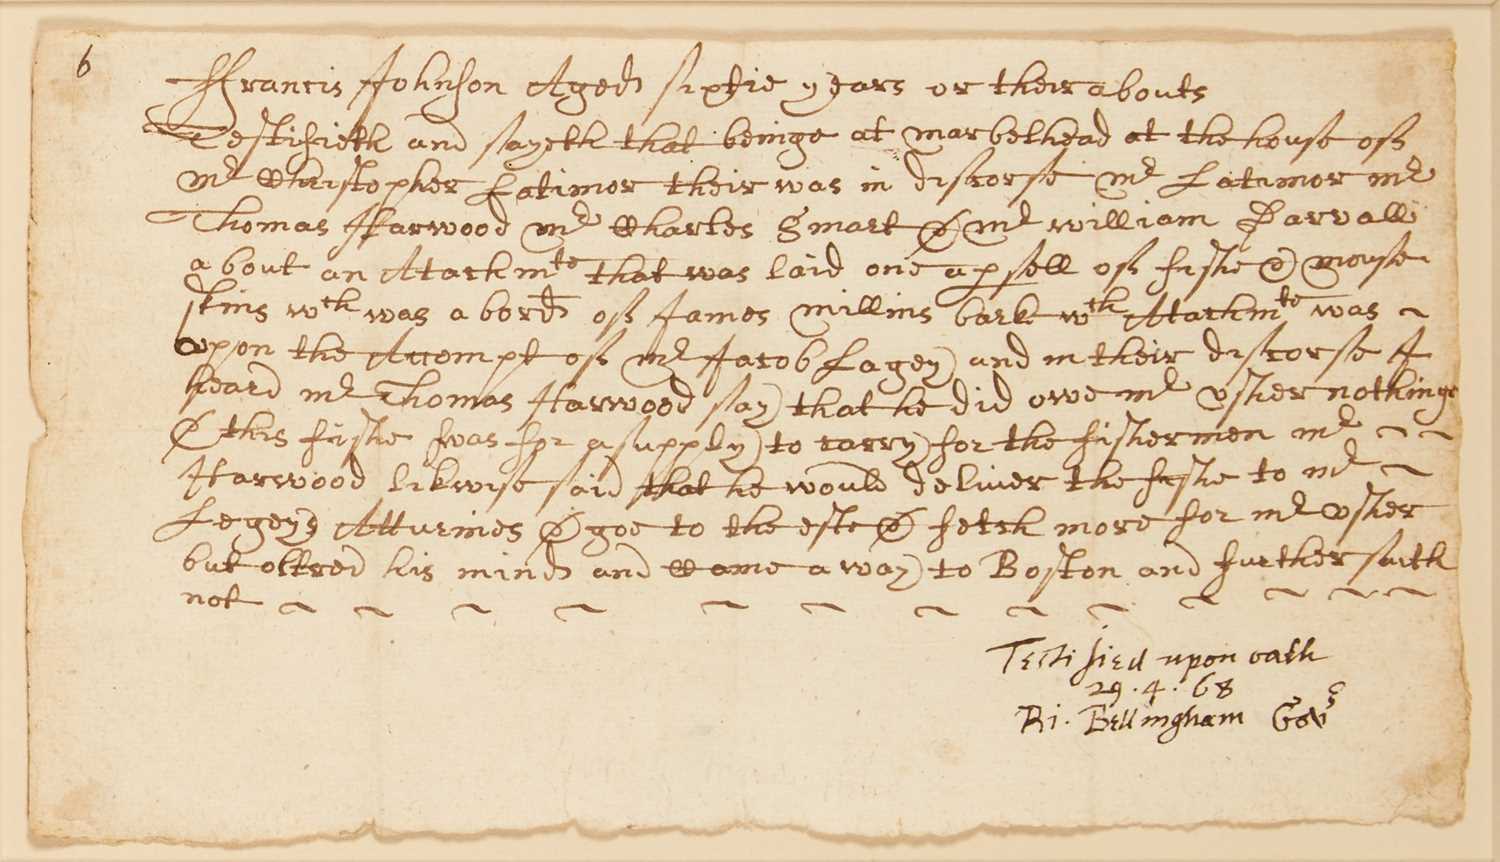 6
ffrancis Johnson Aged sixtie years or their abouts
Testifieth and sayeth that beinge at marbelhead at the house off
mr Christopher Latimor their was in discorse mr Latimor mr
Thomas Harwood mr Charles Smart & mr william Darvall
about an Atachmte that was laid one a psell off fishe & mouse
skins wth was a bord off James millins bark wth Atachmte was ~
upon the Accompt off mr Jacob Lagey and in their discorse I
heard mr Thomas Harwood say that he did owe mr usher nothinge
& this fishe was for a supply to carry for the fishermen mr ~ ~
Harwood likwise said that he would deliver the fishe to mr ~
Legeys Atturines & goe to the este & fetch more for mr usher
but oltred his mind and came away to Boston and further saith
not ~ ~ ~ ~ ~ ~ ~ ~ ~ ~ ~ ~ ~
Testified upon oath
29 . 4 . 68
Ri. Bellingham Govr